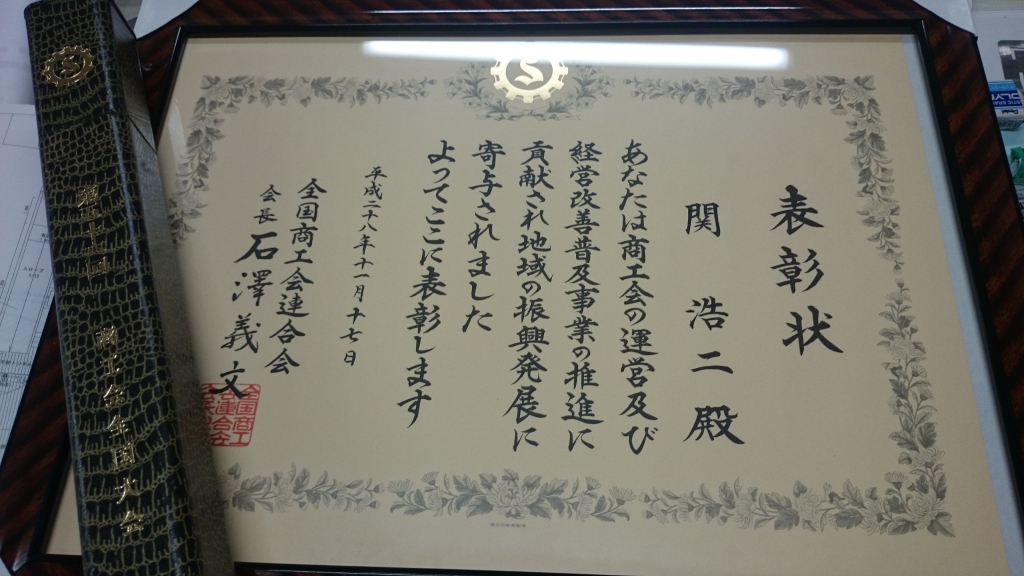 表彰状
関浩二殿
あなたは商工会の運営及び
経営改善普及事業の推進に
貢献され地域の振興発展に
寄与されました
よってここに表彰します
平成二十八年十一月十七日
全国商工会連合会
会長 石澤義文
全国商工
会連合会
商工会全国大会